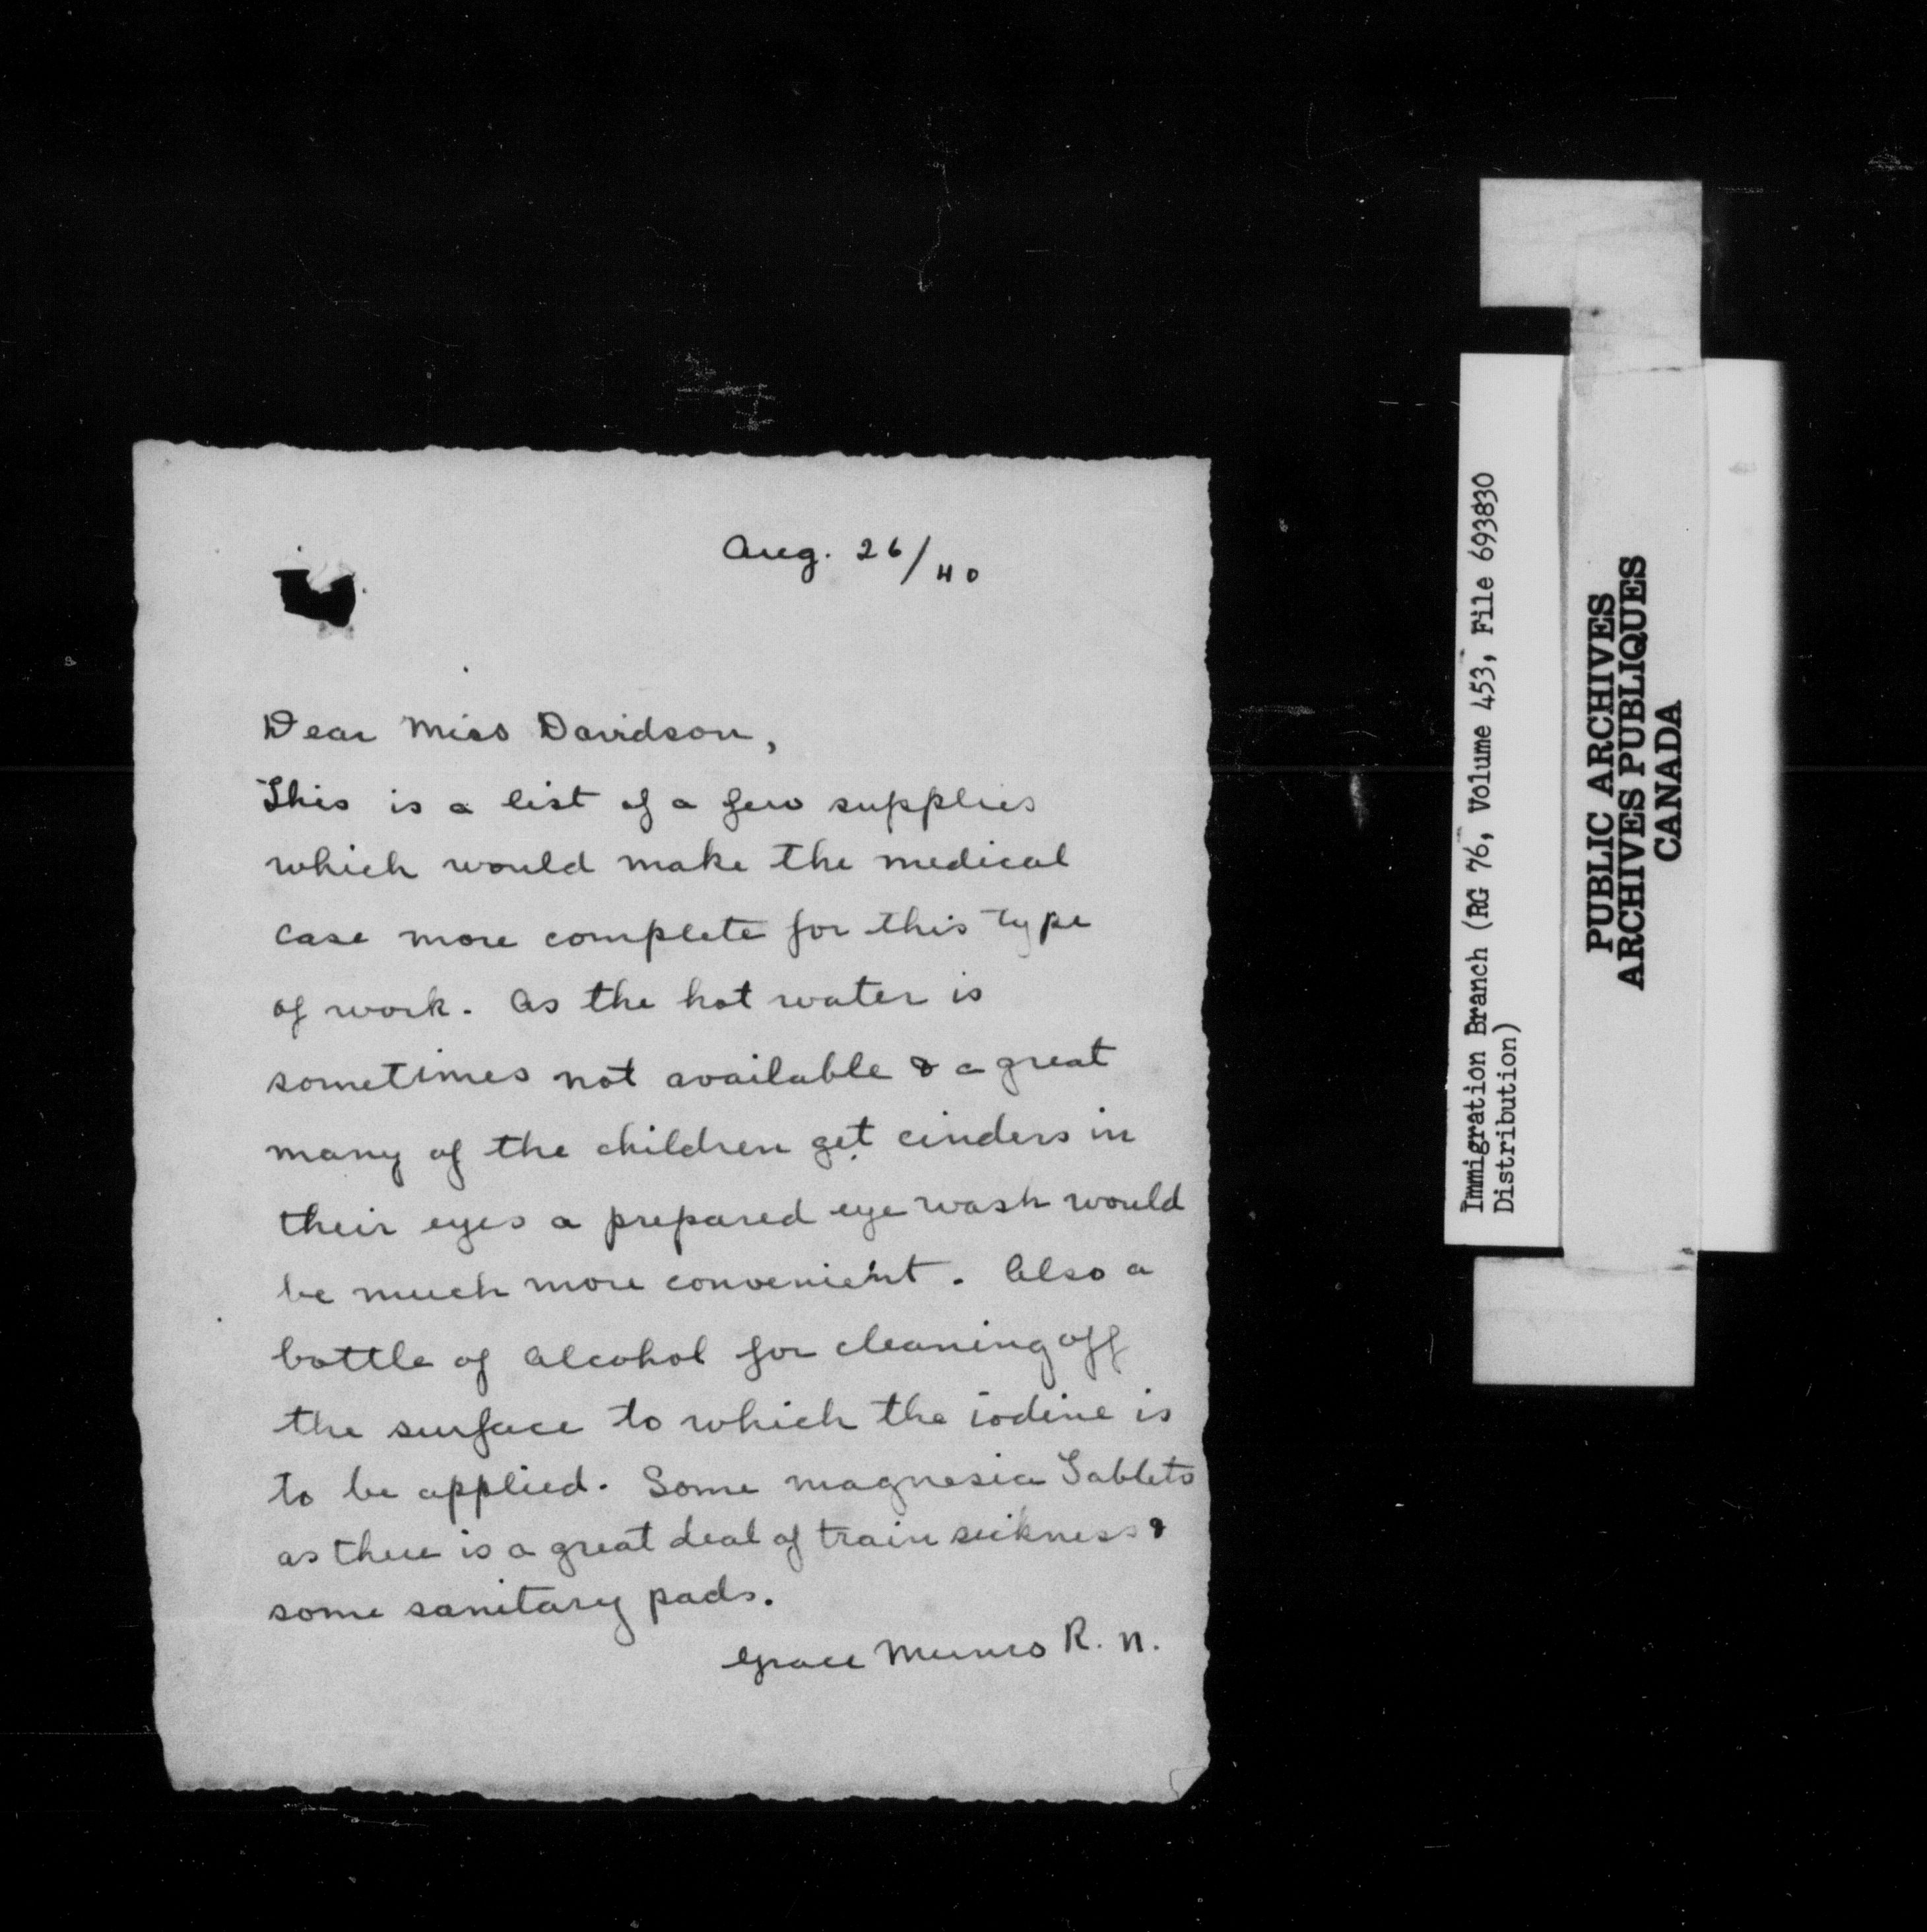 Aug. 26/40
Dear Miss Davidson,
This is a list of a few supplies
which would make the medical
case more complete for this type
of work. As the hot water is
sometimes not available & a great
many of the children get cinders in
their eyes a prepared eye wash would
be much more convenient. Also a
bottle of alcohol for cleaning off
the surface to which the iodine is
to be applied. Some magnesia Tablets
as there is a great deal of train sickness &
some sanitary pads.
Grace Munro R. N.
Immigration Branch (RG 76, Volume 453, File 693830
Distribution)
PUBLIC ARCHIVES
ARCHIVES PUBLIQUES
CANADA